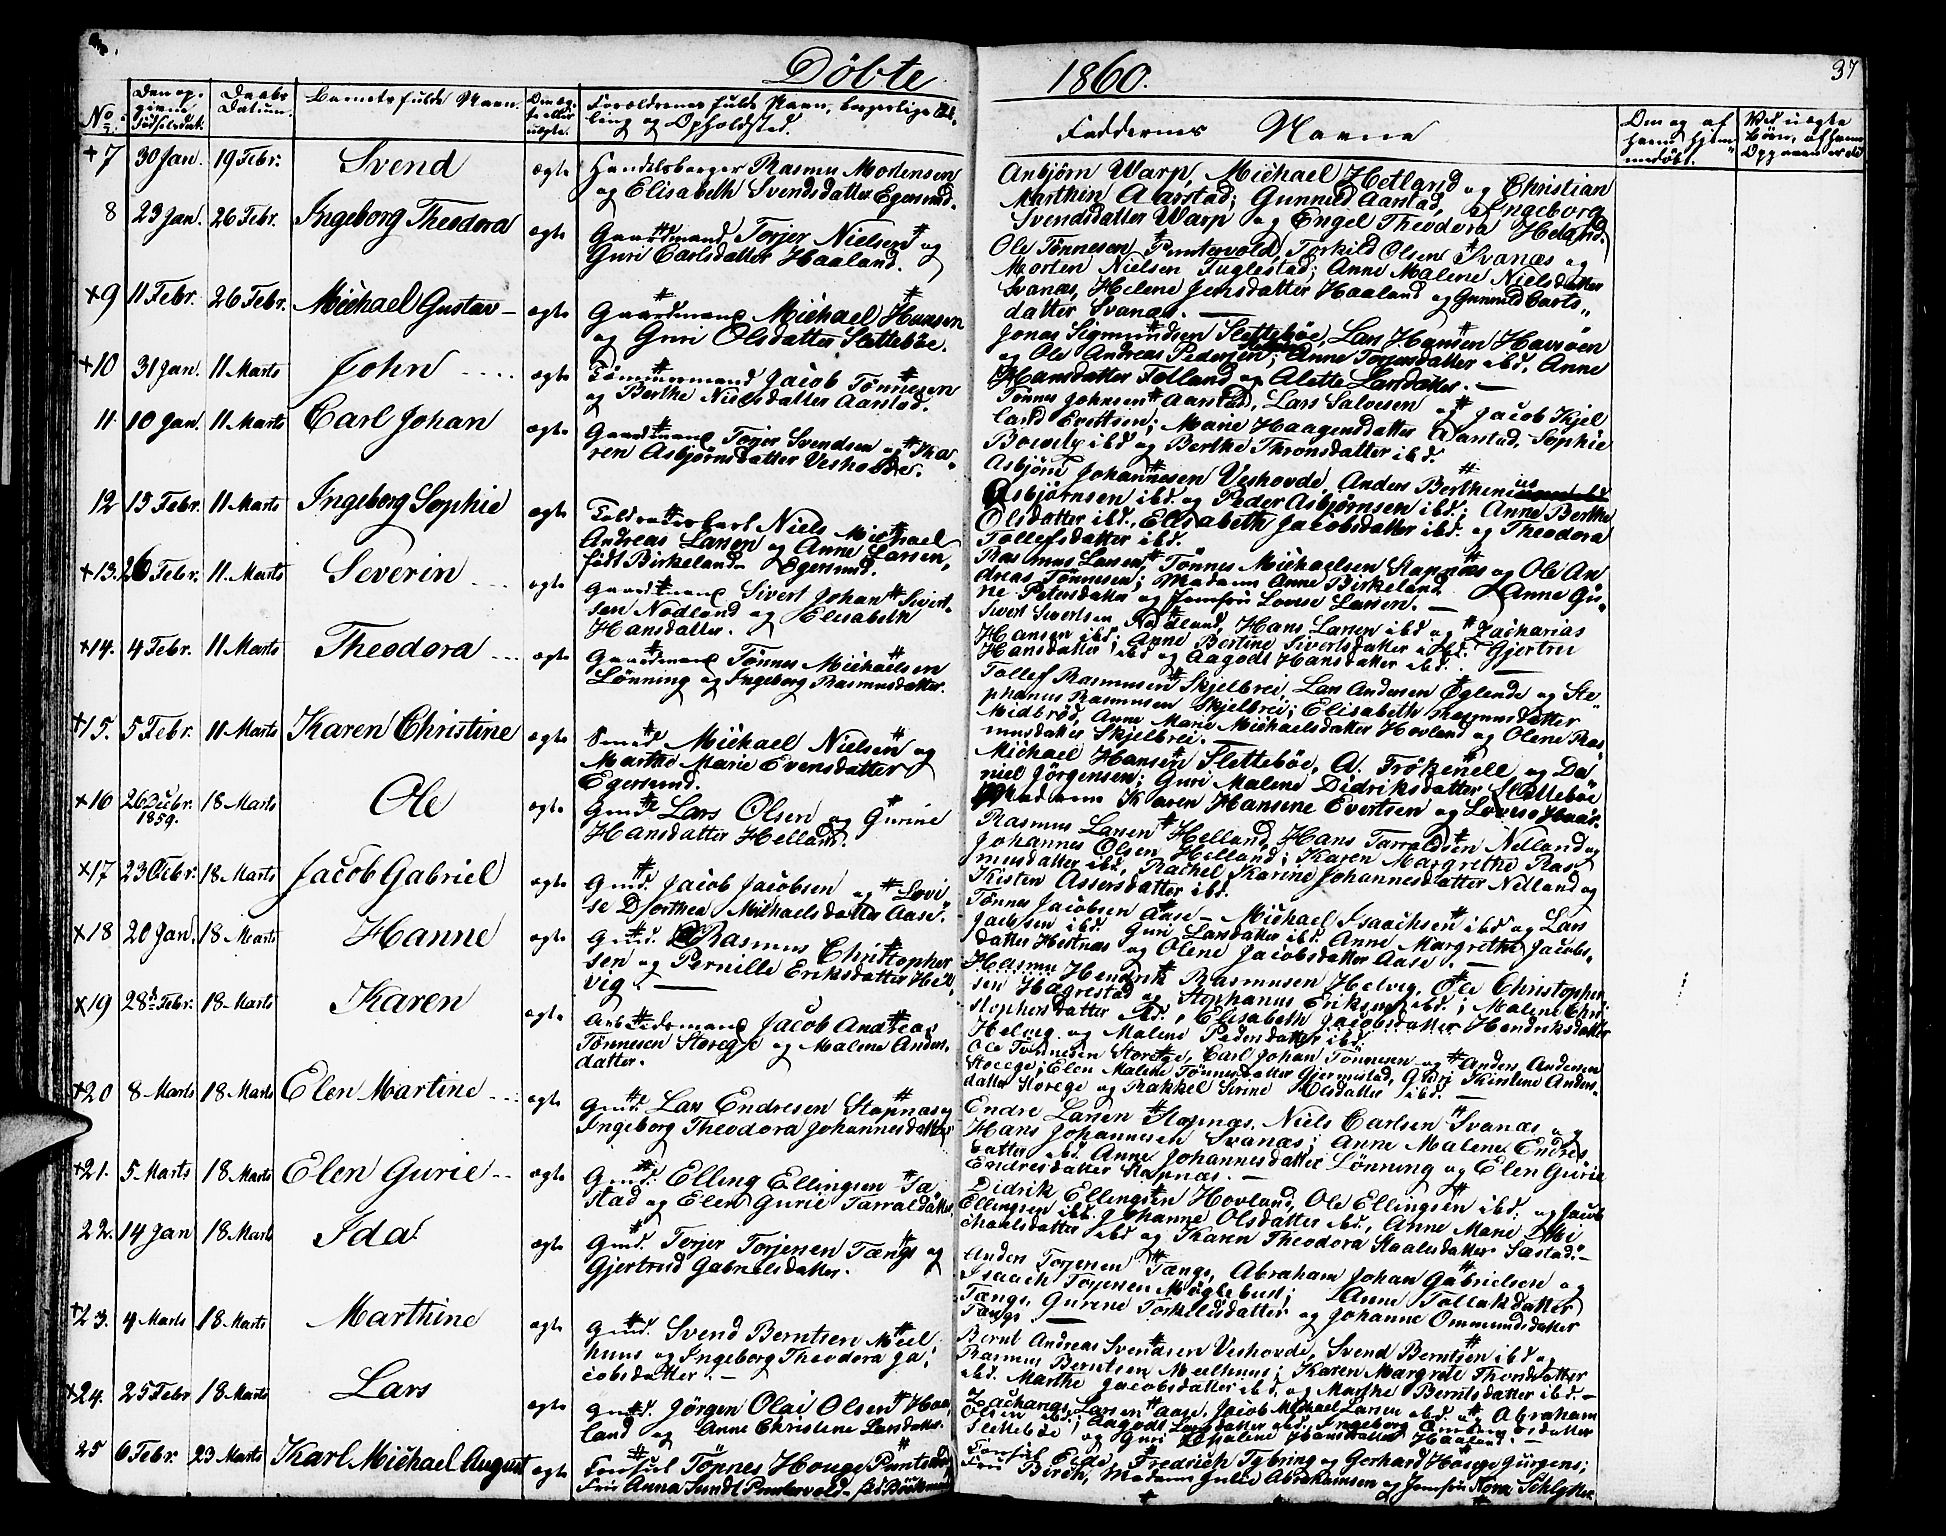 Döbte 1860.
37
No
Den op-
givne
Födselsdat.
Daabs
Datum.
Barnets fulde Navn.
Om æg-
te eller
uægte.
Forældrenes fulde Navn, borgerlige Stil-
ling og Opholdsted.
Faddernes Navne
Om og af
hvem hjem-
medöbt.
Ved uægte
Börn, af hvem
Opgaven er
+7 30 Jan. 19 Febr. Svend ægte Handelsborger Rasmus Mortensen
og Elisabeth Svendsdatter Egersund.
Anbjörn Warp, Michael Hetland og Christian
Marthin Aarstad; Gunnild Aarstad, Ingeborg
Svendsdatter Warp og Engel Theodora Heland.
8 23 Jan. 26 Febr. Ingeborg Theodora ægte Gaardmand Torjer Nielsen og
Guri Carlsdatter Haaland.
Ole Tönnesen Puntervold, Torkild Olsen Svanæs og
Morten Nielsen Fuglestad; Anne Malene Nielsdatter
Svanæs, Helene Jensdatter Haaland og Gunnild Carls-
datter Svanæs.
+9 11 Febr. 26 Febr. Michael Gustav ægte Gaardmand Michael Hansen
og Guri Olsdatter Sletteböe.
Jonas Sigmundsen Sletteböe, Lars Hansen Havsöen
og Ole Andreas Pedersen; Anne Torjersdatter ibd., Anne
Hansdatter Folland og Alette Larsdatter.
+10 31 Jan. 11 Marts John ægte Tömmermand Jacob Tönnesen
og Berthe Nielsdatter Aarstad.
Tönnes Johnsen Aarstad, Lars Salvesen og Jacob Kjel
land Evertsen; Marie Haagensdatter Aarstad, Sophie
ibd og Berthe Thronsdatter ibd.
11. 10 Jan. 11 Marts Carl Johan ægte Gaardmand Torjer Svendsen og Ka-
ren Asbjörnsdatter Veshovde.
Asbjörn Johannesen Veshovde, Anders Berthenius
Asbjörnsen ibd. og Peder Asbjörnsen ibd; Anne Berthe
Olsdatter ibd., Elisabeth Jacobsdatter ibd. og Theodora
Tollefsdatter ibd.
12 15 Febr. 11 Marts Ingeborg Sophie ægte Niels Michael
Andreas Larsen og Anne Larsen,
födt Birkeland Egersund.
Rasmus Larsen, Tönnes Michaelsen Stapnæs og Ole An
dreas Tönnesen; Madame Anne Birkeland, Anne Gu-
ne Petersdatter og Jomfru Lovise Larsen.
+13. 26 Febr. 11 Marts Severin ægte Gaardmand Sivert Johan Sivert-
sen Nodland og Elisabeth
Hansdatter.
Sivert Sivertsen Nodland, Hans Larsen ibd og Zacharias
Hansen ibd; Anne Bertine Sivertsdatter ibd. Gjertrui
Hansdatter ibd og Aagode Hansdatter ibd.
+14. 4 Febr. 11 Marts Theodora ægte Gaardmand Tönnes Michaelsen
Lönning og Ingeborg Rasmusdatter.
Tollef Rasmussen Skjelbrei, Lars Andersen Öglende og Ste-
phanus Rasmussen Skjelbrei; Elisabeth Rasmusdatter
Midbröd, Anne Marie Michaelsdatter Hovland og Olene Ras-
musdatter Skjelbrei.
+15. 5 Febr. 11 Marts Karen Christine ægte Smed Michael Nielsen og
Marthe Marie Evensdatter
Egersund.
Michael Hansen Sletteböe, A. Trökenell og Da
niel Jörgensen; Guri Malene Didriksdatter Sletteböe
Madame Karen Hansine Evertsen og Lovise
+16 26 Decbr. 1859. 18 Marts Ole ægte Gmd Lars Olsen og Gurine
Hansdatter Helland.
Rasmus Larsen Helland, Hans Tarraldsen Nelland og
Johannes Olsen Helland; Karen Margrethe Ras-
musdatter ibd, Rachel Karine Johannesdatter Nelland og
Kisten Assersdatter ibd.
+17 23 Febr. 18 Marts Jacob Gabriel ægte Gmd. Jacob Jacobsen og Lovi-
se Dorthea Michaelsdatter Aase.
Tönnes Jacobsen Aase, Michael Isaachsen ibd og Lars
Jacobsen ibd. Guri Larsdatter ibd. Anne Margrethe Jacobs-
datter Hestnæs og Olene Jacobsdatter Aase.
+18 20 Jan. 18 Marts Hanne ægte Gmd. Rasmus Christopher
sen og Pernille Eriksdatter Hel-
vig.
Rasmus Hendrik Rasmussen Helvig, Ole Christopher-
sen Hagrestad og Stephanus Eriksen ibd; Malene Chri-
stophersdatter ibd., Elisabeth Jacobsdatter Hendriksdatter
Helvig og Malene Pedersdatter ibd.
+19 28 Febr. 18 Marts Karen ægte Arbeidsmand Jacob Andreas
Tönnesen Storege og Malene Anders-
datter.
Ole Tönnesen Storege, Carl Johan Tönnesen og Anders Andersen
Storege; Elen Malene Tönnesdatter Gjermestad, Guri Kirstine Anders-
datter Storege og Rakkel Sirine Olsdatter ibd.
+20 8 Marts 18 Marts Elen Martine ægte Gmd. Lars Endresen Stapnæs og
Ingeborg Theodora Johannesdatter
Endre Larsen Stapnæs, Niels Carlsen Svanæs og
Hans Johannesen Svanæs; Anne Malene Endres
datter ibd. Anne Johannesdatter Lönning og Elen Gurie
Endresdatter Stapnæs.
+21. 5 Marts 18 Marts Elen Gurie ægte Gmd. Elling Ellingsen Sæ
stad og Elen Gurie Tarraldsdatter
Didrik Ellingsen Hovland, Ole Ellingsen ibd. og Jacob
Ellingsen ibd. Johanne Olsdatter ibd, Anne Marie Mi
chaelsdatter ibd og Karen Theodora Staalesdatter Sæstad.
22. 14 Jan 18 Marts Ida ægte Gmd. Torjer Torjersen Tængs og
Gjertrud Gabrielsdatter.
Anders Torjersen Tængs, Abraham Johan Gabrielsen og
Isaach Torjersen Möglebust; Anne Tollaksdatter
Tængs, Gurine Torkildsdatter og Johanne Ommundsdatter
Tængs
+23. 4 Marts 18 Marts Marthine ægte Gmd. Svend Berntsen Meel
huus og Ingeborg Theodora Ja-
cobsdatter.
Bernt Andreas Svendsen Veshovde, Svend Berntsen ibd og
Rasmus Berntsen Meelhuus; Karen Margrete Thorsdatter
ibd. Marthe Jacobsdatter ibd, og Marthe Berntsdatter ibd.
+24. 25 Febr 18 Marts Lars ægte Gmd. Jörgen Olai Olsen Haa
land og Anne Christene Larsdatter.
Zacharias Larsen Aase, Jacob Michael Larsen ibd. og Abraham
Olsen ibd; Aagode Larsdatter ibd. Ingeborg
Sletteböe og Guri Malene Hansdatter Haaland.
25 6 Febr. 23 Marts Karl Michael August ægte Konsul Tönnes Houge Puntervold,
Fru Anna Sundt Puntervold
Konsul Eide, Fredrich Tybring og Gerhard Houge Jürgens;
Fru Birch, Madame Julie Abrahamsen og Jomfru Nora Schlytter